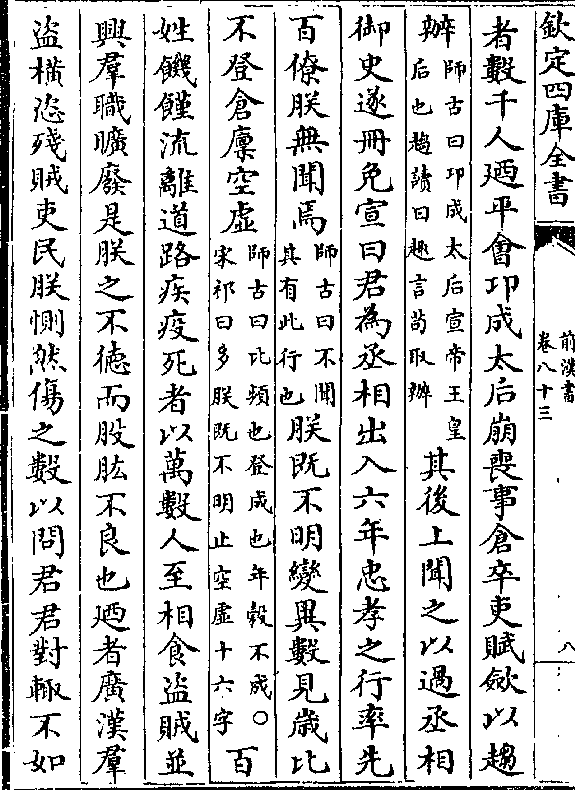 欽定四庫全書
前漢書
卷八十三
八
者數千人廼平會邛成太后崩喪事倉卒吏賦斂以趨
辦師古曰邛成太后宣帝王皇
后也趨讀曰趣言苟取辦
其後上聞之以過丞相
御史遂冊免宣曰君為丞相出入六年忠孝之行率先
百僚朕無聞焉師古曰不聞
其有此行也
朕既不明變異數見歲比
不登倉廩空虛師古曰比頻也登成也年穀不成○
宋祁曰多朕既不明止空虛十六字
百
姓饑饉流離道路疾疫死者以萬數人至相食盜賊並
興羣職曠廢是朕之不德而股肱不良也廼者廣漢羣
盜橫恣殘賊吏民朕惻然傷之數以問君君對輒不如